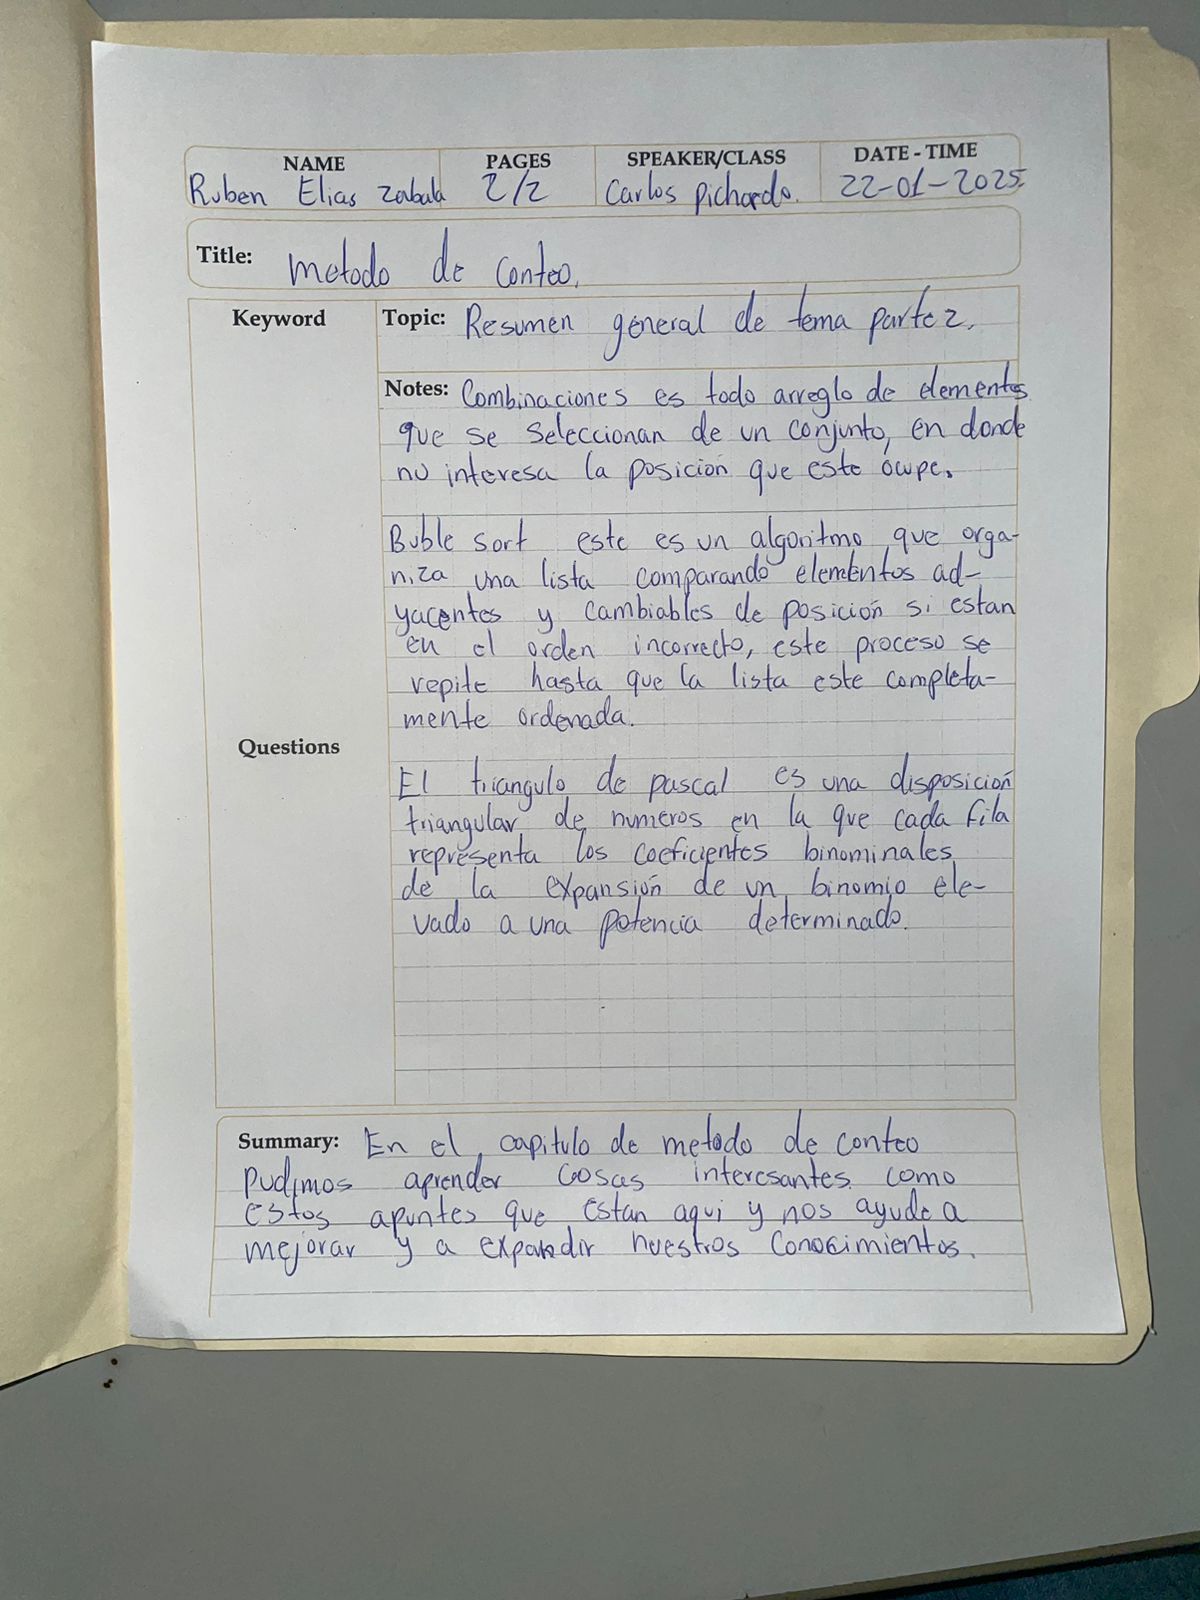 NAME PAGES SPEAKER/CLASS DATE - TIME
Ruben Elias Zabala 2/2 Carlos Pichardo. 22-01-2025.
Title: metodo de conteo.
Keyword Topic: Resumen general de tema parte 2.
Notes: Combinaciones es todo arreglo de elementos
que se seleccionan de un conjunto, en donde
no interesa la posición que este ocupe.
Buble sort este es un algoritmo que orga-
niza una lista comparando elementos ad-
yacentes y cambiables de posición si estan
en el orden incorrecto, este proceso se
repite hasta que la lista este completa-
mente ordenada.
Questions
El triangulo de pascal es una disposición
triangular de numeros en la que cada fila
representa los coeficientes binominales
de la expansión de un binomio ele-
vado a una potencia determinado.
Summary: En el capitulo de metodo de conteo
pudimos aprender cosas interesantes como
estos apuntes que estan aqui y nos ayude a
mejorar y a expandir nuestros conocimientos.